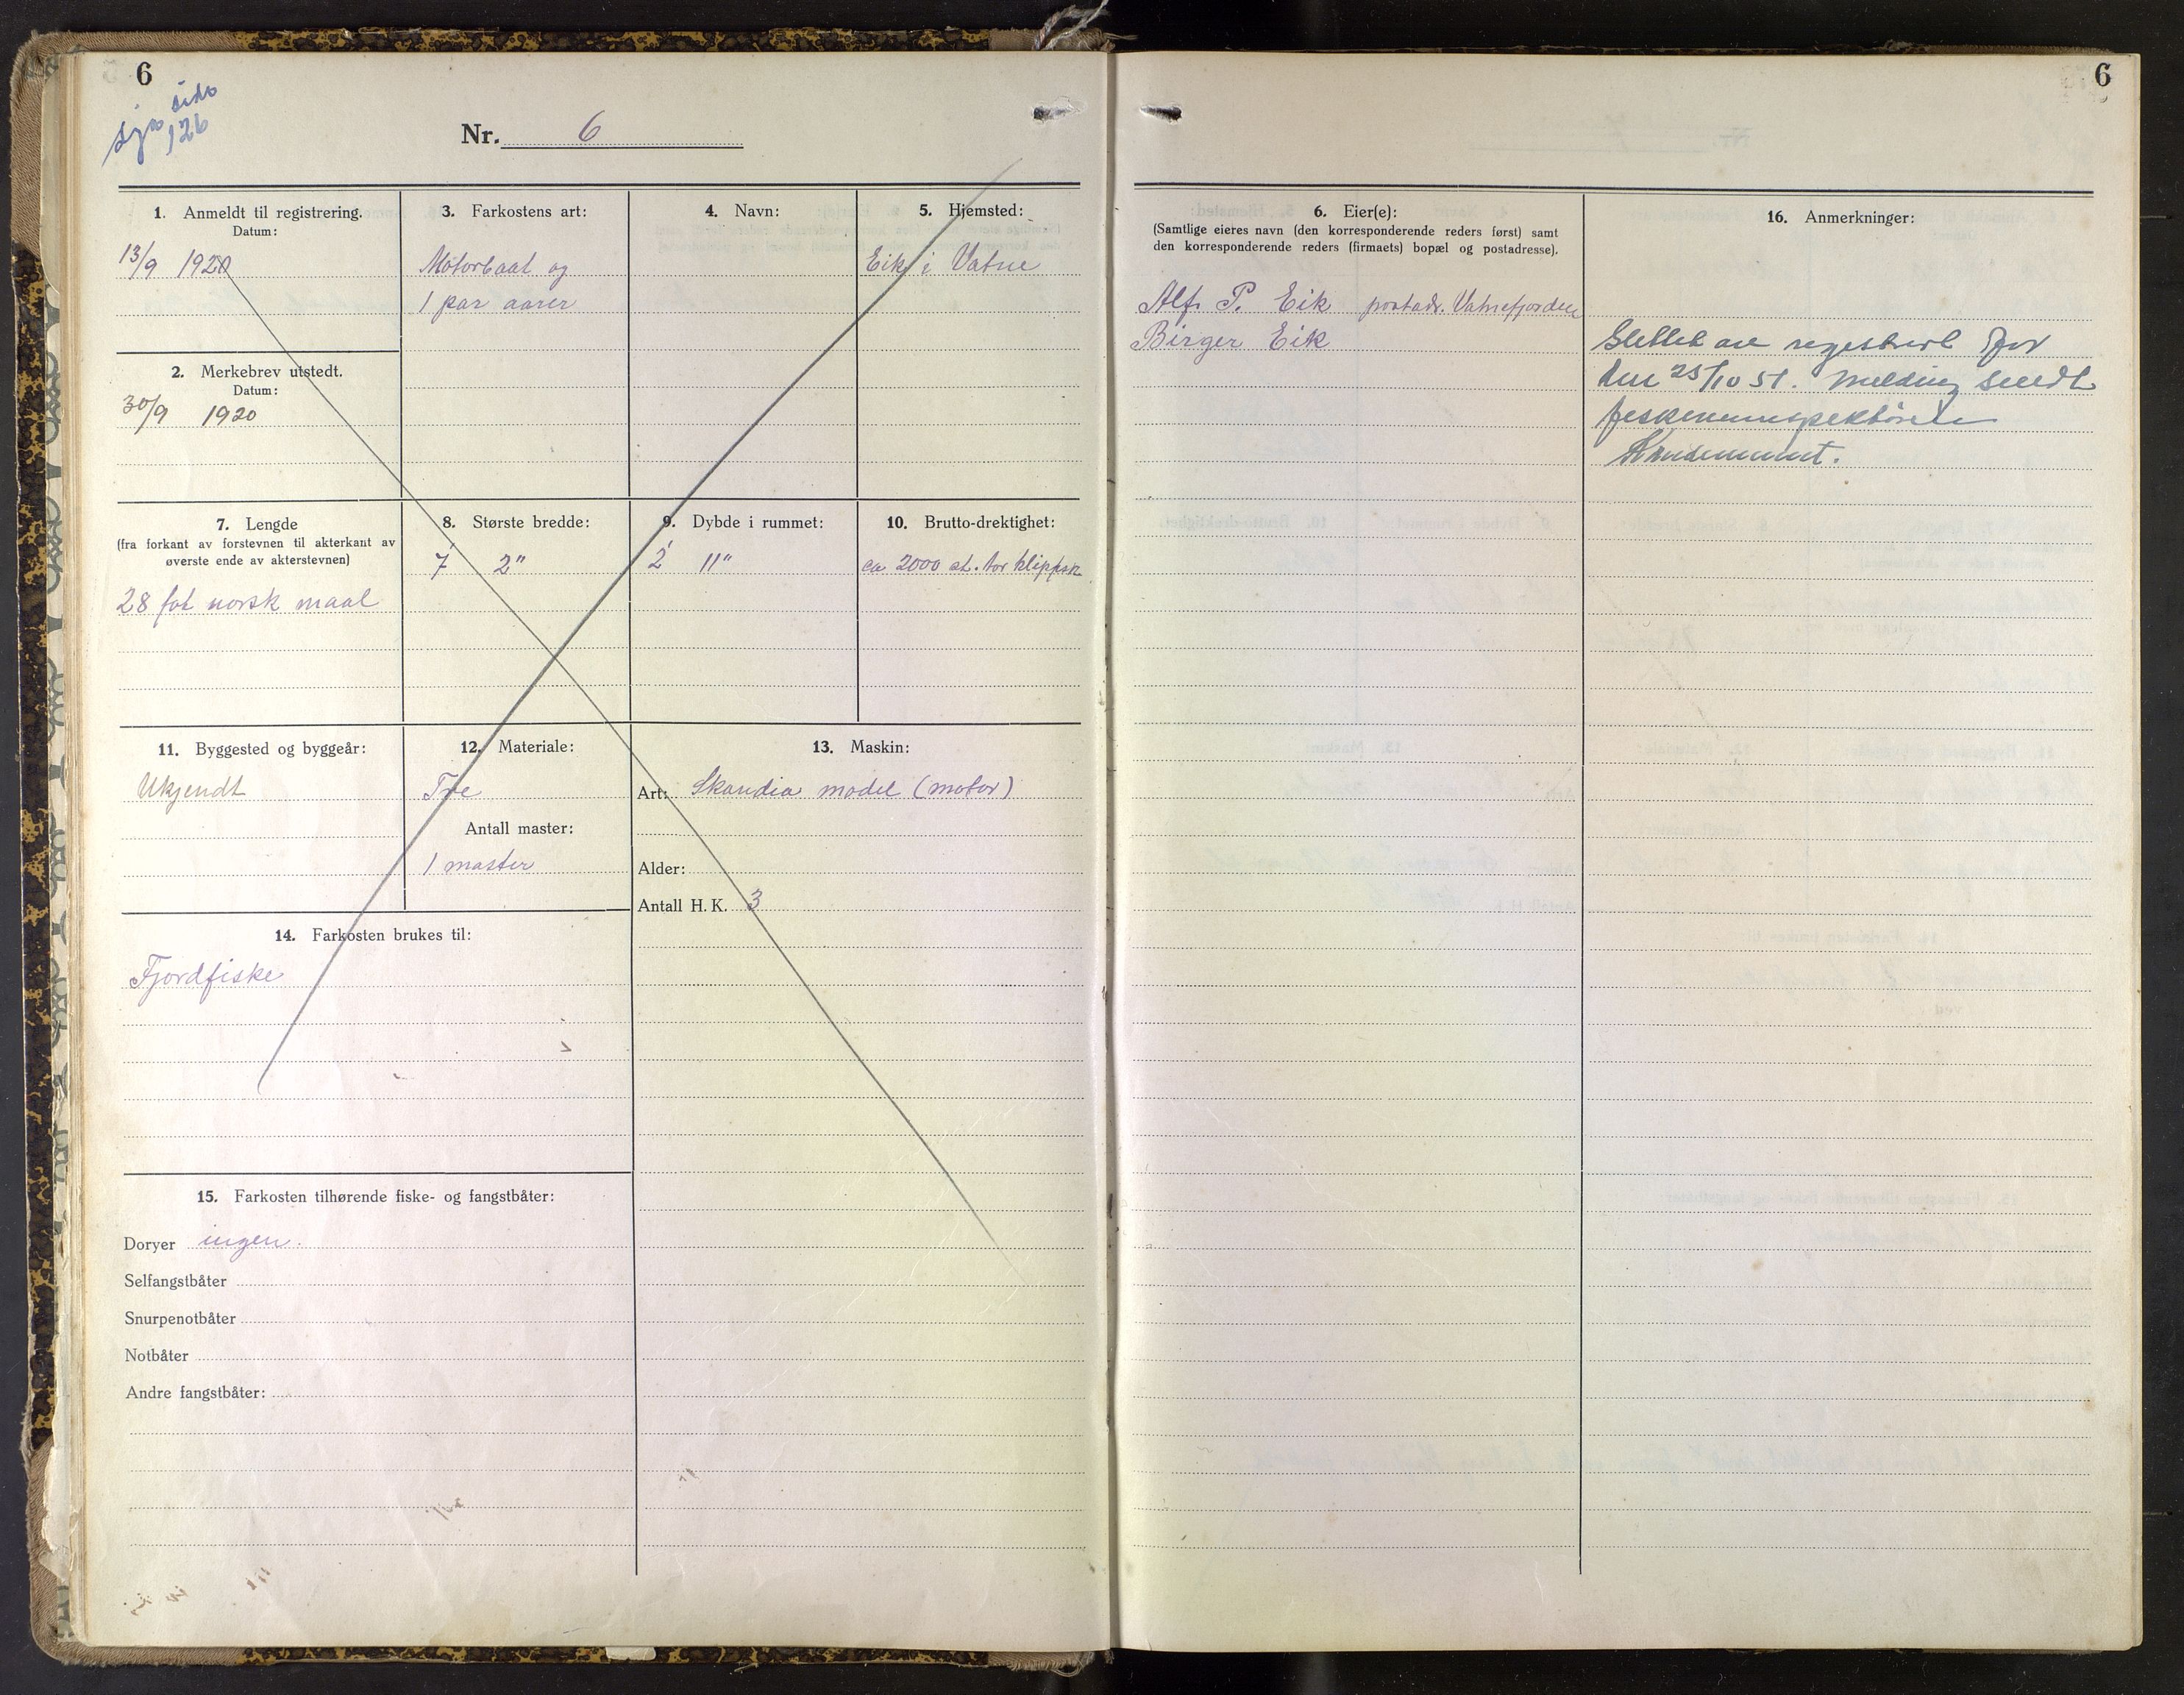 6
sjå side
126
Nr. 6
1. Anmeldt til registrering.
Datum:
13/9 1920
2. Merkebrev utstedt.
Datum:
30/9 1920
3. Farkostens art:
Motorbaat og
1 par aarer
4. Navn:
5. Hjemsted:
Eik i Vatne
7. Lengde
(fra forkant av forstevnen til akterkant av
øverste ende av akterstevnen)
28 fot norsk maal
8. Største bredde:
7' 2"
9. Dybde i rummet:
2' 11"
10. Brutto-drektighet:
ca 2000 st. tor klipfisk
11. Byggested og byggeår:
Ukjendt
12. Materiale:
Tre
Antall master:
1 master
13. Maskin:
Art: Skandia model (motor)
Alder:
Antall H.K. 3
14. Farkosten brukes til:
Fjordfiske
15. Farkosten tilhørende fiske- og fangstbåter:
Doryer ingen.
Selfangstbåter
Snurpenotbåter
Notbåter
Andre fangstbåter:
6
6. Eier(e):
(Samtlige eieres navn (den korresponderende reders først) samt
den korresponderende reders (firmaets) bopæl og postadresse).
Alf P. Eik postadr. Vatnefjorden
Birger Eik
16. Anmerkninger:
Slettet av registeret
den 25/10 51. Melding sendt